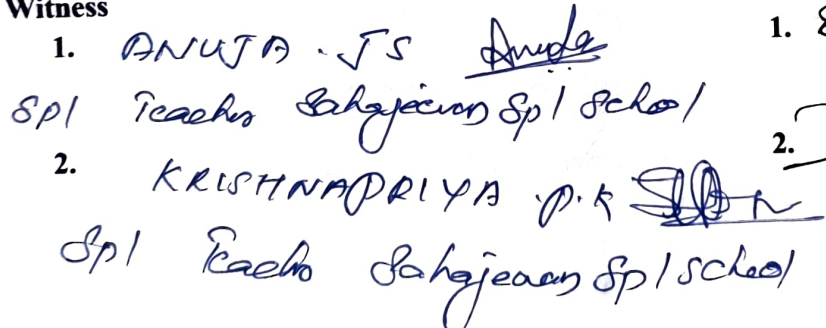 Witness
1. ANUJA . JS Anuja
Spl Teacher Sahajeevan Spl School
2. KRISHNAPRIYA .P.K
Spl Teacher Sahajeevan Spl School
1.
2.